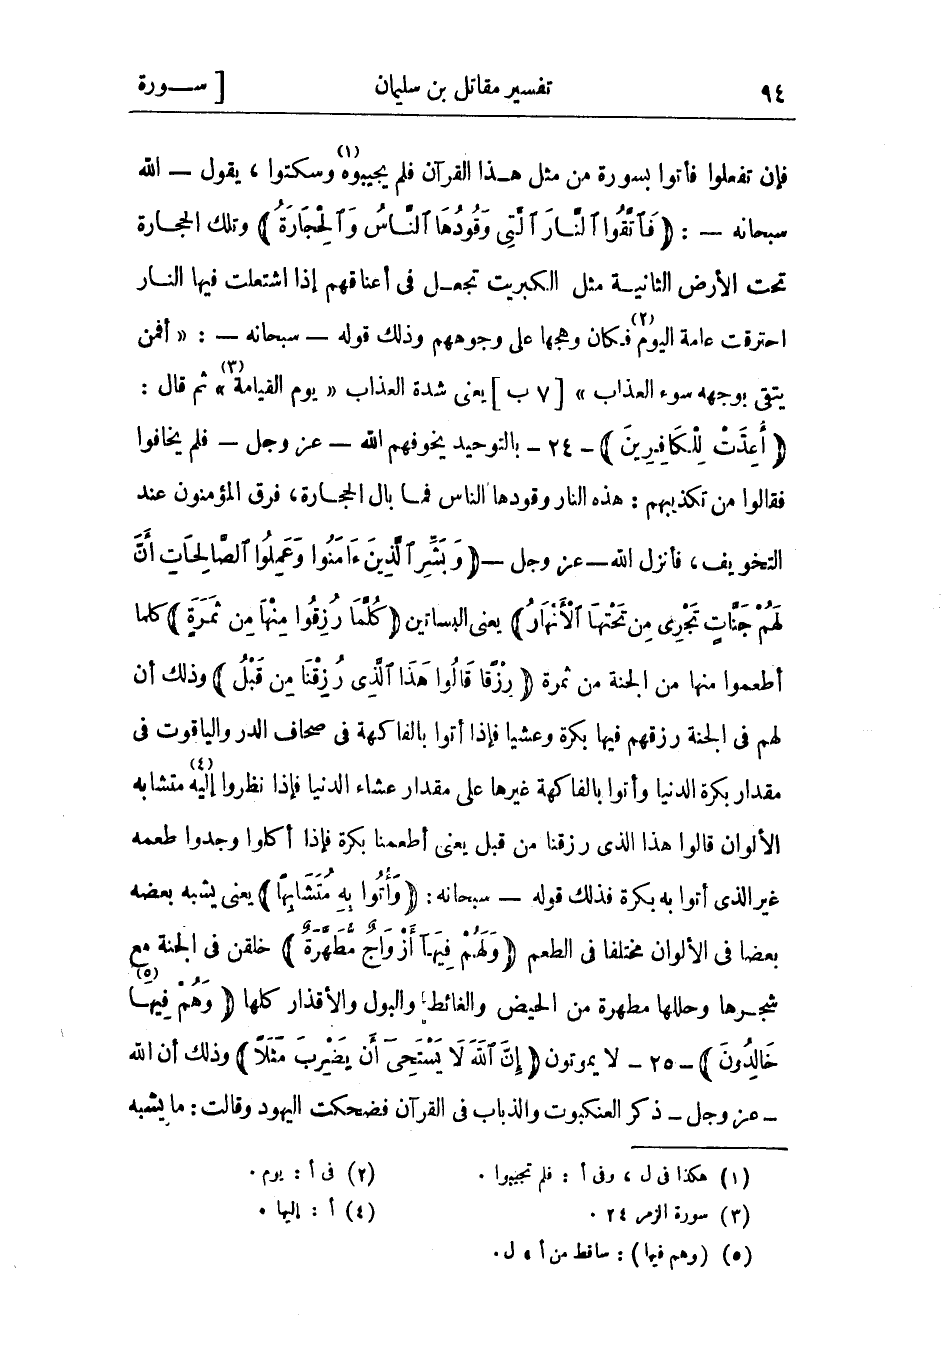 ٩٤ تفسير مقاتل بن سليمان [ ســورة
فإن تفعلوا فأتوا بسورة من مثل هــذا القرآن فلم يجيبوه(١) وسكتوا ، يقول — الله
سبحانه — : ( فَٱتَّقُوا ٱلنَّـارَ ٱلَّتِى وَقُودُهَا ٱلنَّاسُ وَٱلْحِجَارَةُ ) وتلك الحجــارة
تحت الأرض الثانيــة مثل الكبريت تجعــل فى أعناقهم إذا اشتعلت فيها النــار
احترقت عامة اليوم(٢) فكان وهجها على وجوههم وذلك قوله — سبحانه — : « أفمن
يتقى بوجهه سوء العذاب » [ ٧ ب ] يعنى شدة العذاب « يوم القيامة(٣) » ثم قال :
( أُعِدَّتْ لِلْكَافِرِينَ ) ـ ٢٤ ـ بالتوحيد يخوفهم الله — عز وجل — فلم يخافوا
فقالوا من تكذيبهم : هذه النار وقودها الناس فمــا بال الحجــارة ، فرق المؤمنون عند
التخويف ، فأنزل الله — عز وجل — ( وَبَشِّرِ ٱلَّذِينَ ءَامَنُوا وَعَمِلُوا ٱلصَّالِحَاتِ أَنَّ
لَهُمْ جَنَّاتٍ تَجْرِى مِن تَحْتِهَا ٱلْأَنْهَارُ ) يعنى البساتين ( كُلَّمَا رُزِقُوا مِنْهَا مِن ثَمَرَةٍ ) كلما
أطعموا منها من الجنة من ثمرة ( رِزْقًا قَالُوا هَذَا ٱلَّذِى رُزِقْنَا مِن قَبْلُ ) وذلك أن
لهم فى الجنة رزقهم فيها بكرة وعشيا فإذا أتوا بالفاكهة فى صحاف الدر والياقوت فى
مقدار بكرة الدنيا وأتوا بالفاكهة غيرها على مقدار عشاء الدنيا فإذا نظروا إليه(٤) متشابه
الألوان قالوا هذا الذى رزقنا من قبل يعنى أطعمنا بكرة فإذا أكلوا وجدوا طعمه
غير الذى أتوا به بكرة فذلك قوله — سبحانه : ( وَأُتُوا بِهِ مُتَشَابِهًا ) يعنى يشبه بعضه
بعضا فى الألوان مختلفا فى الطعم ( وَلَهُمْ فِيهَآ أَزْوَاجٌ مُّطَهَّرَةٌ ) خلقن فى الجنة مع
شجــرها وحللها مطهرة من الحيض والغائط والبول والأقذار كلها ( وَهُمْ فِيهَــا(٥)
خَالِدُونَ ) ـ ٢٥ ـ لا يموتون ( إِنَّ ٱللَّهَ لَا يَسْتَحْىِۤ أَن يَضْرِبَ مَثَلًا ) وذلك أن الله
ـ عز وجل ـ ذكر العنكبوت والذباب فى القرآن فضحكت اليهود وقالت : ما يشبه
(١) هكذا فى ل ، وفى أ : فلم تجيبوا . (٢) فى أ : يوم .
(٣) سورة الزمر ٢٤ . (٤) أ : إليها .
(٥) (وهم فيها) : ساقط من أ ، ل .